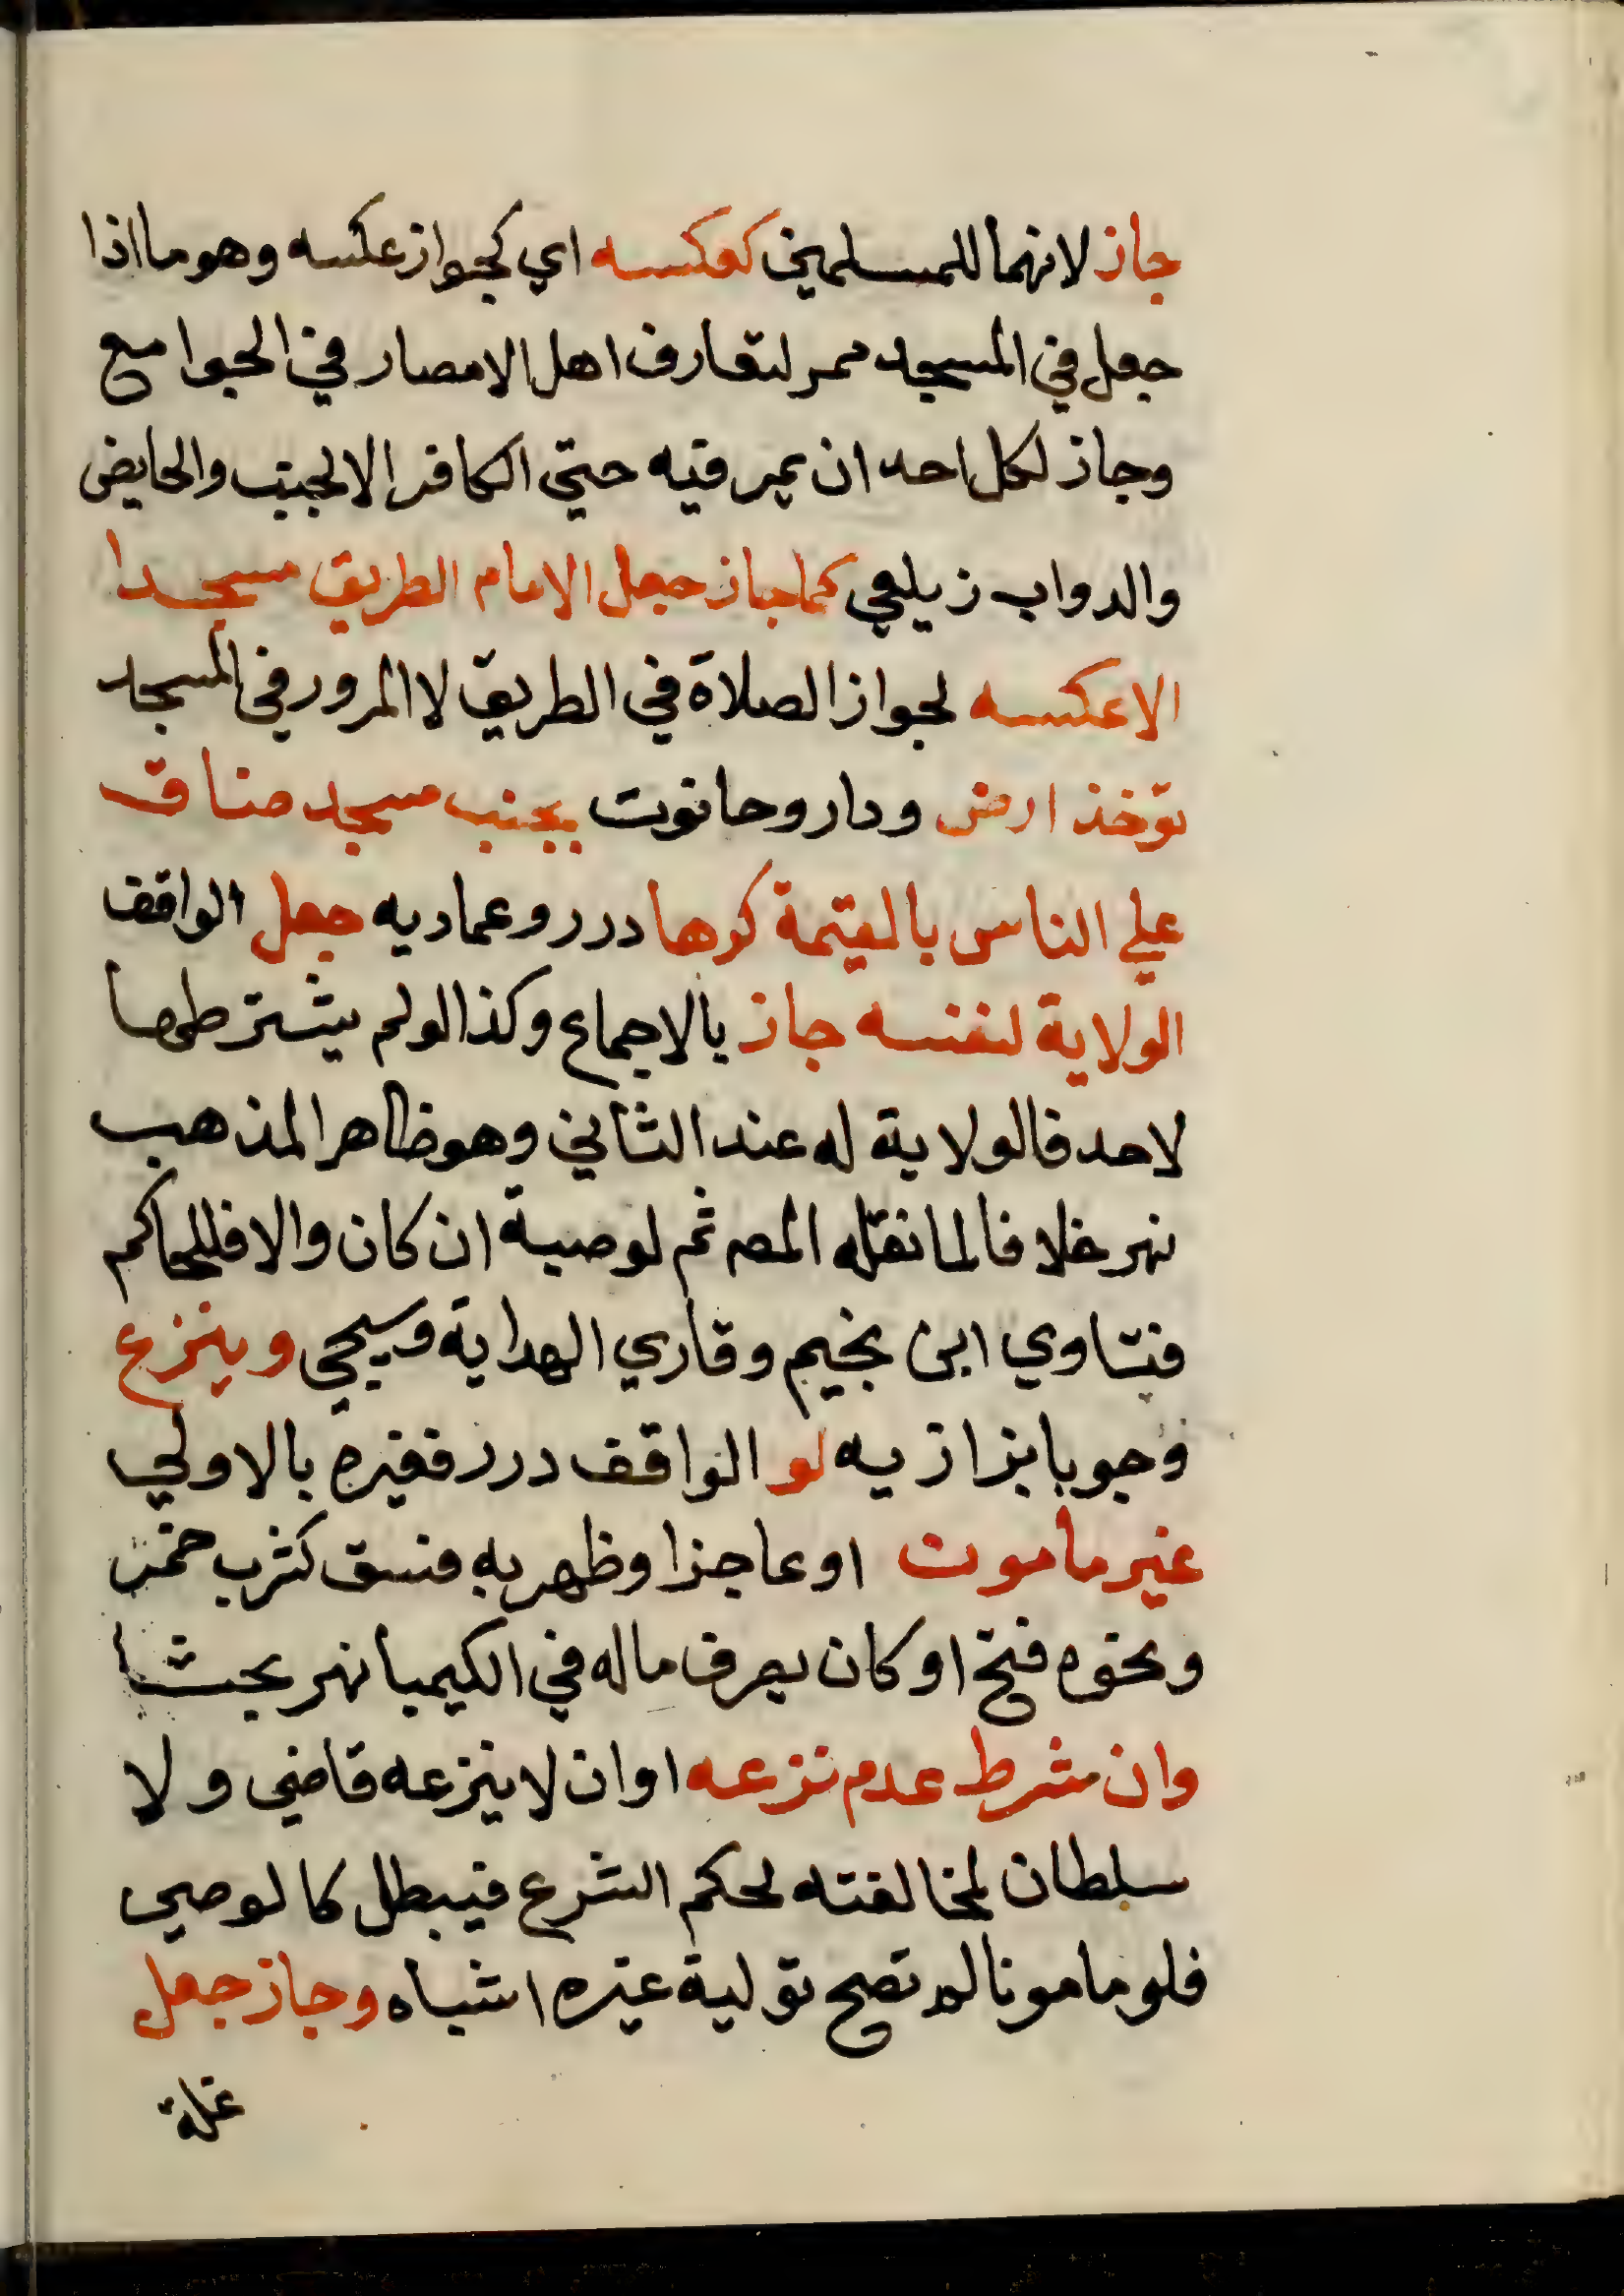 جاز لانهما للمسلمين كعكسه اي كجواز عكسه وهو ما اذا
جعل في المسجد ممر لتعارف اهل الامصار في الجوامع
وجاز لكل احد ان يمر فيه حتي الكافر الا الجنب والحايض
والدواب زيلعي كما جاز جعل الامام الطريق مسجدا
لا عكسه لجواز الصلاة في الطريق لا المرور في المسجد
توخذ ارض ودار وحانوت بجنب مسجد ضاق
علي الناس بالقيمة كرها درر وعماديه جعل الواقف
الولاية لنفسه جاز بالاجماع وكذا لو لم يشترطها
لاحد فالولاية له عند الثاني وهو ظاهر المذهب
نهر خلافا لما نقله المصه ثم لوصية ان كان والا فللحاكم
فتاوي ابن نجيم وقاري الهداية وسيجي وينزع
وجوبا بزازيه لو الواقف درر فغيره بالاولي
غير مامون او عاجزا وظهر به فسق كشرب خمر
ونحوه فتح او كان يصرف ماله في الكيميا نهر بحثا
وان شرط عدم نزعه او ان لا ينزعه قاضي ولا
سلطان لمخالفته لحكم الشرع فيبطل كالوصي
فلو مامونا لم تصح تولية غيره اشباه وجاز جعل
غلة